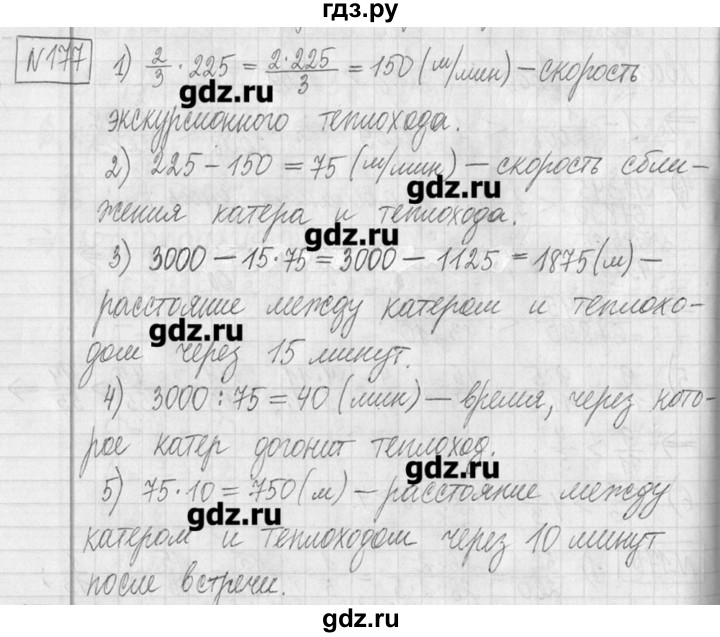 гдз.ру
№177
1) 2/3 · 225 = 2·225/3 = 150 (м/мин) – скорость
gdz.ru
экскурсионного теплохода.
2) 225 – 150 = 75 (м/мин) – скорость сбли-
gdz.ru
жения катера и теплохода.
gdz.ru
3) 3000 – 15·75 = 3000 – 1125 = 1875 (м) –
расстояние между катером и теплохо-
gdz.ru
дом через 15 минут.
4) 3000 : 75 = 40 (мин) – время, через кото-
рое катер догонит теплоход.
gdz.ru
5) 75·10 = 750 (м) – расстояние между
gdz.ru
катером и теплоходом через 10 минут
после встречи.
gdz.ru